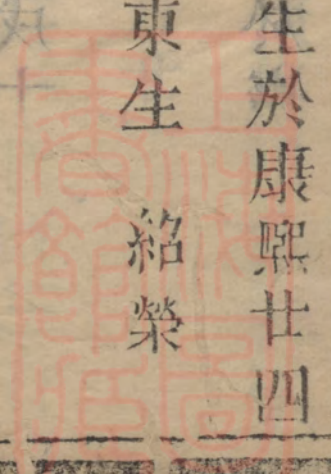 生於康熙廿四
東生 紹榮